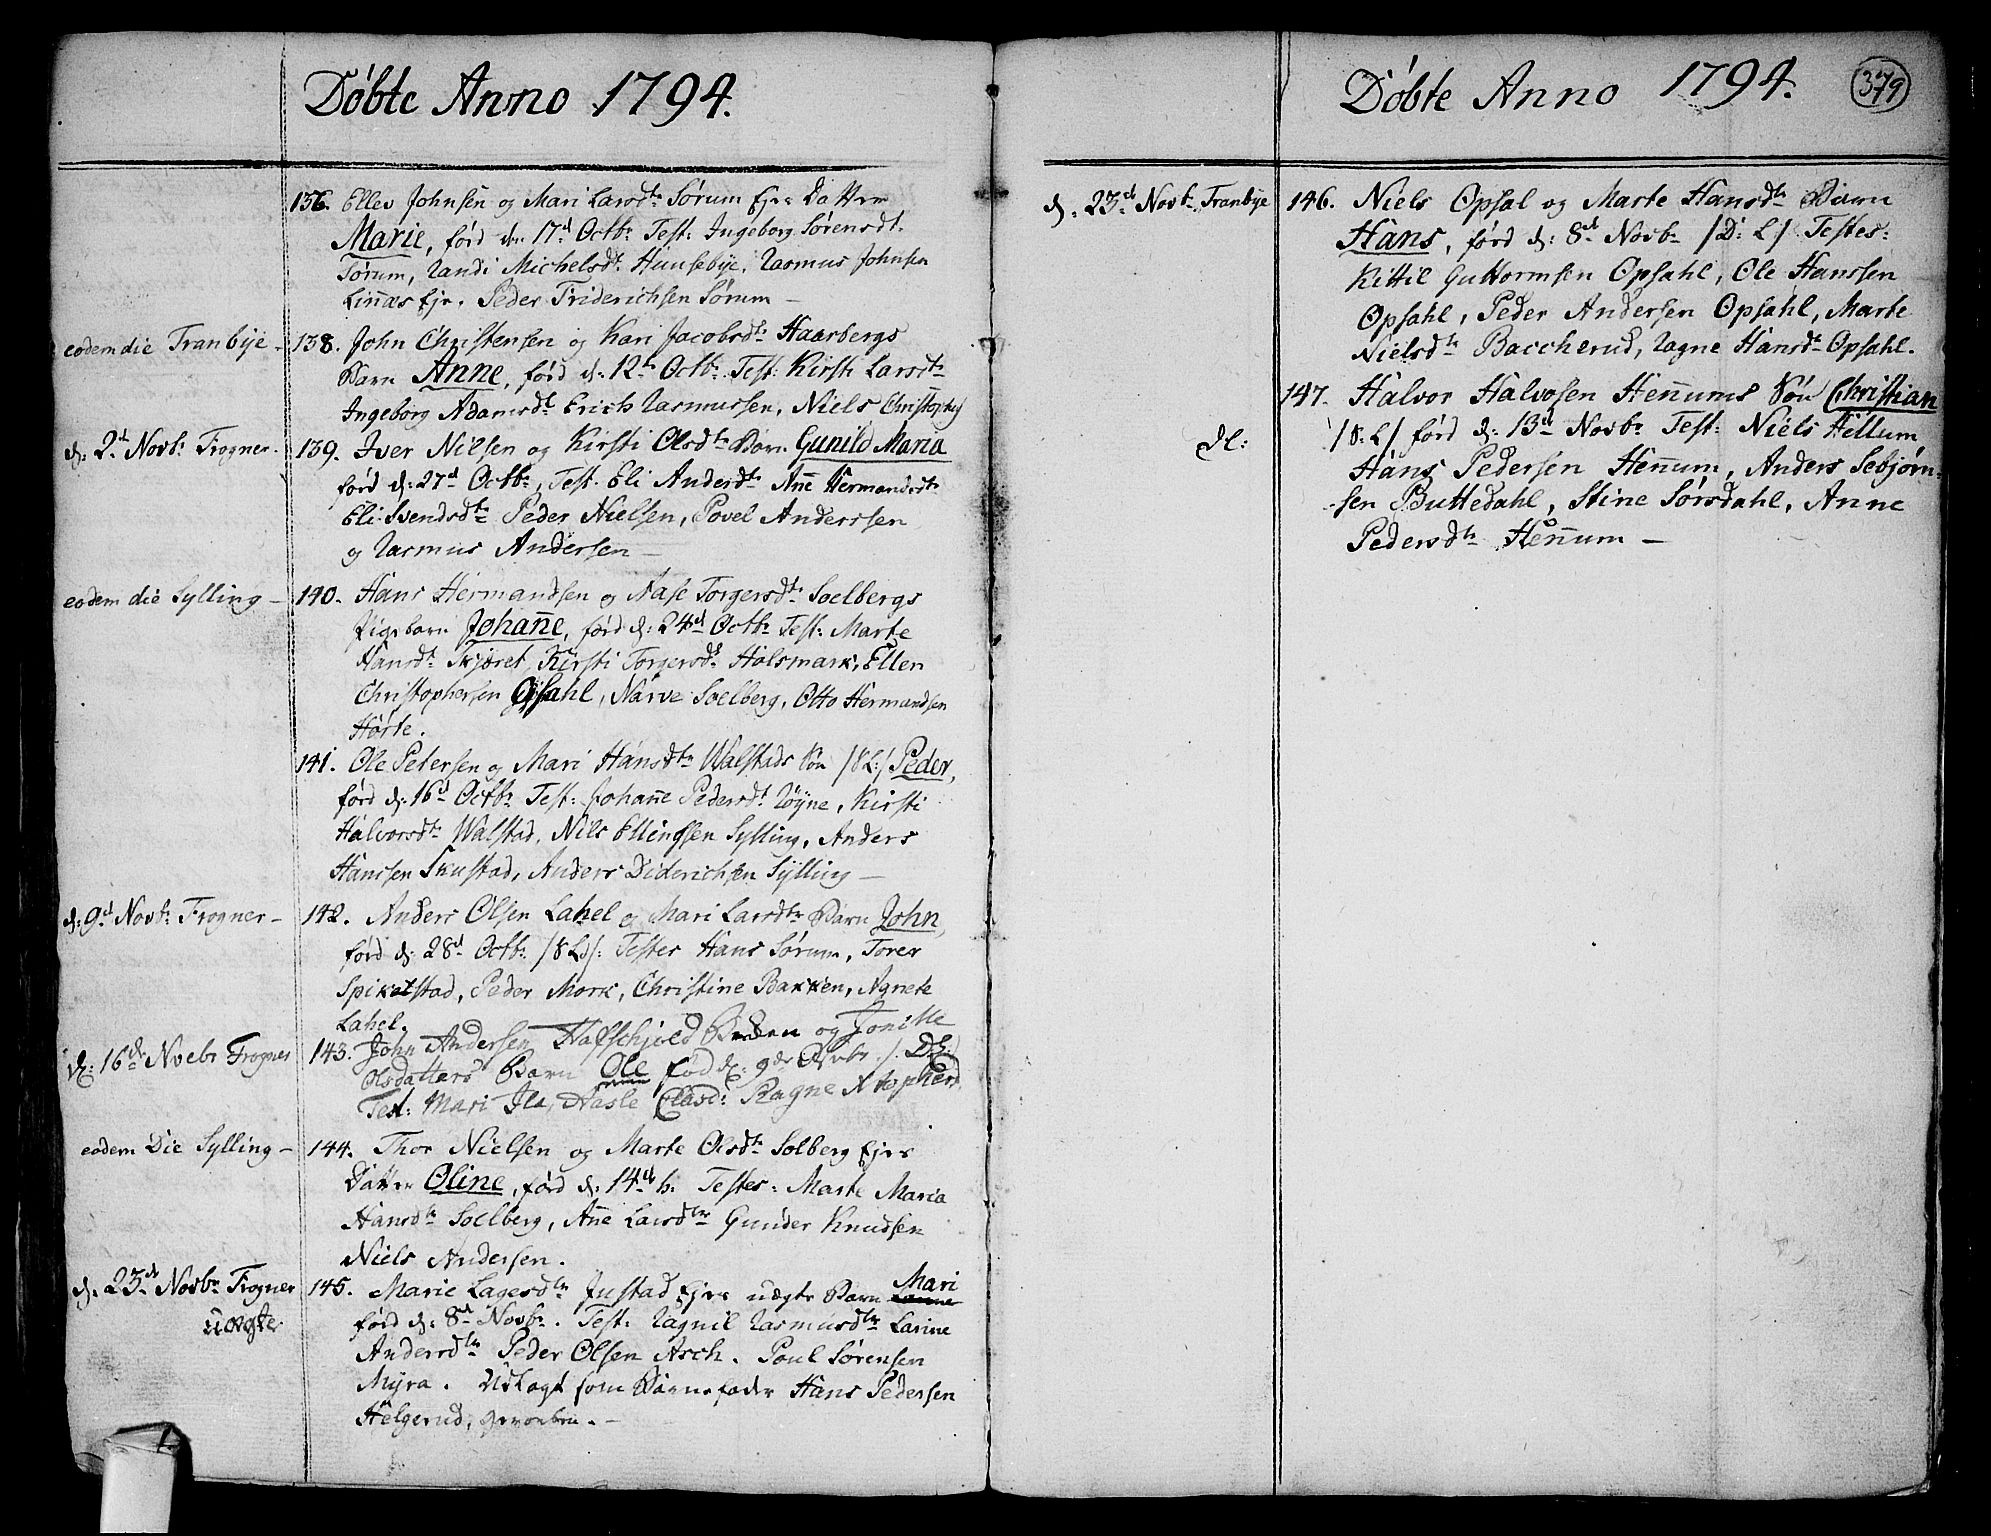 Døbte Anno 1794.
136. Ellev Johnsen og Mari Larsdtr Sørum Ejes Datter
Marie, førd den 17d Octbr Test: Ingeborg Sørensdt.
Sørum, Randi Michelsdt. Hunsebye, Rasmus Johnsen
Linnæs Eje. Peder Friderichsen Sørum —
eodem die Tranbÿe –
138. John Christensen og Kari Jacobsdtr Haarbergs
Barn Anne, førd d: 12te Octbr Test: Kirsti Larsdtr
Ingeborg Adamsdt Erich Rasmussen, Niels Christophs
d: 2d Novbr Frogner –
139. Iver Nilsen og Kirsti Olsdtr Barn Gunild Maria
førd d: 27d Octbr, Test. Eli Andersdtr Anne Hermandsdtr
Eli Svendsdtr Peder Nielsen, Povel Anderssen
og Rasmus Andersen —
eodem die Sylling –
140. Hans Hermandsen og Aase Torgersdtr Soelbergs
Pigebarn Johanne, førd d: 24d Octbr Test: Marte
Hansdtr Skjæret, Kirsti Torgersdtr Holsmark, Ellen
Christophersen Opsahl, Narve Soelberg, Otto Hermandsen
Hørte.
141. Ole Petersen og Mari Hansdtr Walstads Søn /8L:/ Peder,
førd d: 16d Octbr Test: Johanne Pedersdt Røyne, Kirsti
Halvorsdtr Walstad, Nils Ellingsen Sylling, Anders
Hanssen Skustad, Anders Diderichsen Sÿlling —
d: 9d Novbr Frogner –
142. Anders Olsen Lahel og Mari Larsdtr Barn John
førd d: 28d Octbr /8Ld/: Testes Hans Sørum, Torer
Spikestad, Peder Mork, Christine Bakken, Agnete
Lahel.
d: 16de Novbr Frogner
143. John Andersen Hafschjold og Tonille
Olsdatters Barn Ole fød d: 9de Novbr ./. D.L:
Test: Mari Ila, Aasle Clasd: Ragne Xtophersd
eodem Die Sylling –
144. Thor Nielsen og Marte Olsdtr Solberg Ejes
Datter Oline, førd d: 14d h: Testes: Marte Maria
Hansdtr Soelberg, Anne Larsdtr Gunder Knudsen
Niels Andersen.
d: 23d Novbr Frogner
uægte
145. Marie Lagesdtr Justad Ejes uægte Barn Mari
førd d: 8d Novbr. Test: Ragnil Rasmusdtr Larine
Andersdtr Peder Olsen Asch. Poul Sørensen
Myra. Udlagt som Barnefader Hans Pedersen
Helgerud,
Døbte Anno 1794.
379
d: 23d Novbr Tranbye
146. Niels Opsal og Marte Hansdtr Barn
Hans, førd d: 8d Novbr /D: L/ Testes:
Kittil Guttormsen Opsahl, Ole Hanssen
Opsahl, Peder Andersen Opsahl, Marte
Nielsdtr Baccherud, Ragne Hansdtr Opsahl.
Dl:
147. Halvor Halvosen Hennums Søn Christian
/8: L/ førd d: 13d Novbr Test: Niels Hellum
Hans Pedersen Hennum, Anders Sebjørn-
sen Buttedahl, Stine Sørsdahl, Anne
Pedersdtr Hennum —